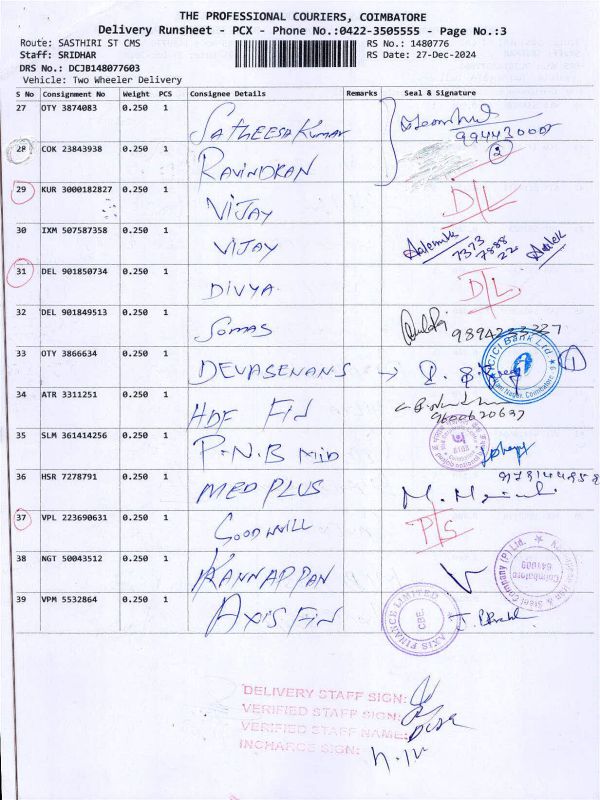 THE PROFESSIONAL COURIERS, COIMBATORE
Delivery Runsheet - PCX - Phone No.:0422-3505555 - Page No.:3
Route: SASTHIRI ST CMS RS No.: 1480776
Staff: SRIDHAR RS Date: 27-Dec-2024
DRS No.: DCJB148077603
Vehicle: Two Wheeler Delivery
S No Consignment No Weight PCS Consignee Details Remarks Seal & Signature
27 OTY 3874083 0.250 1 SATHEESH KUMAR
28 COK 23843938 0.250 1 RAVINDRAN 2
29 KUR 3000182827 0.250 1 VIJAY D/L
30 IXM 507587358 0.250 1 VIJAY 7373 7888 22
31 DEL 901850734 0.250 1 DIVYA D/L
32 DEL 901849513 0.250 1 SOMAS
33 OTY 3866634 0.250 1 DEVASENANS → ICICI Bank Ltd 1
34 ATR 3311251 0.250 1 HDF FIN 9600620637
35 SLM 361414256 0.250 1 P.N.B MID
36 HSR 7278791 0.250 1 MED PLUS
37 VPL 223690631 0.250 1 GOODWILL P/S
38 NGT 50043512 0.250 1 KANNAPPAN & Steel Company (P) Ltd. Coimbatore 641009
39 VPM 5532864 0.250 1 AXIS FIN AXIS FINANCE LIMITED CBE.
DELIVERY STAFF SIGN:
VERIFIED STAFF SIGN:
VERIFIED STAFF NAME:
INCHARGE SIGN: